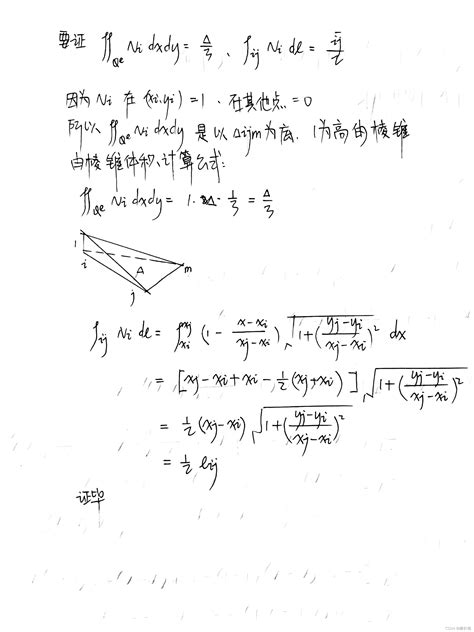 要证 ∬Ωe Ni dxdy = Δ/3 、 ∫ij Ni dl = ij/2
因为 Ni 在 (xi,yi) = 1 、在其他点 = 0
所以 ∬Ωe Ni dxdy 是以 Δijm 为底、1为高的棱锥
由棱锥体积计算公式:
∬Ωe Ni dxdy = 1·Δ·1/3 = Δ/3
1
i
Δ
m
j
∫ij Ni dl = ∫xi^xj (1 - (x-xi)/(xj-xi)) √(1+((yj-yi)/(xj-xi))²) dx
= [xj-xi+xi-½(xj+xi)] √(1+((yj-yi)/(xj-xi))²)
= ½(xj-xi) √(1+((yj-yi)/(xj-xi))²)
= ½ lij
证毕